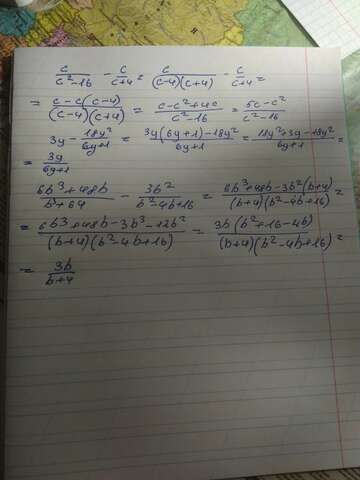 c/(c²-16) - c/(c+4) = c/((c-4)(c+4)) - c/(c+4) =
= (c-c(c-4))/((c-4)(c+4)) = (c-c²+4c)/(c²-16) = (5c-c²)/(c²-16)
3y - 18y²/(6y+1) = (3y(6y+1)-18y²)/(6y+1) = (18y²+3y-18y²)/(6y+1) =
= 3y/(6y+1)
(6b³+48b)/(b³+64) - 3b²/(b²-4b+16) = (6b³+48b-3b²(b+4))/((b+4)(b²-4b+16)) =
= (6b³+48b-3b³-12b²)/((b+4)(b²-4b+16)) = 3b(b²+16-4b)/((b+4)(b²-4b+16)) =
= 3b/(b+4)